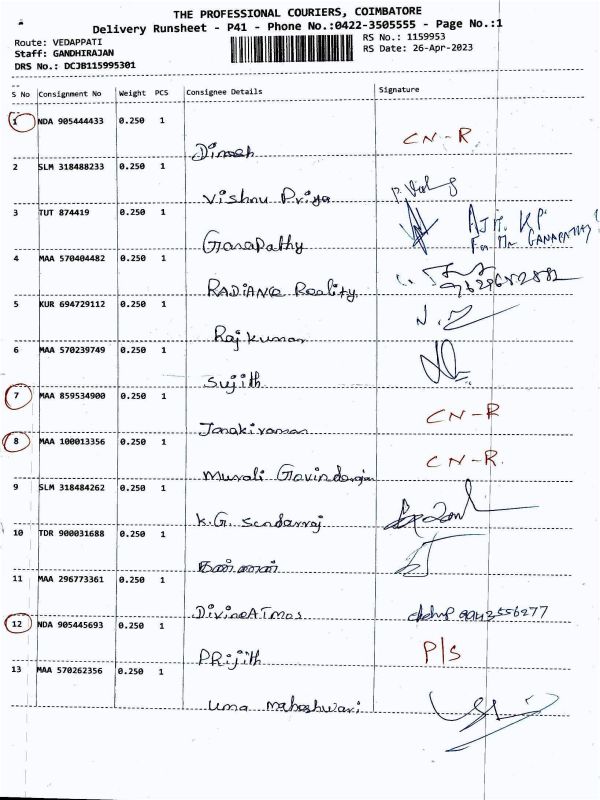 THE PROFESSIONAL COURIERS, COIMBATORE
Delivery Runsheet - P41 - Phone No.:0422-3505555 - Page No.:1
Route: VEDAPPATI
RS No.: 1159953
Staff: GANDHIRAJAN
RS Date: 26-Apr-2023
DRS No.: DCJB115995301
S No Consignment No Weight PCS Consignee Details Signature
1 NDA 905444433 0.250 1
Dinesh CN-R
2 SLM 318488233 0.250 1
Vishnu Priya
3 TUT 874419 0.250 1
Ganapathy
4 MAA 570404482 0.250 1
RADIANCE Reality
5 KUR 694729112 0.250 1
Rajkumar
6 MAA 570239749 0.250 1
Sujith
7 MAA 859534900 0.250 1
Janakiraman CN-R
8 MAA 100013356 0.250 1
Murali Govindarajan CN-R
9 SLM 318484262 0.250 1
K.G. Sendarraj
10 TDR 900031688 0.250 1
11 MAA 296773361 0.250 1
DivineATmos 9943556277
12 NDA 905445693 0.250 1
PRijith P/S
13 MAA 570262356 0.250 1
uma maheshwari